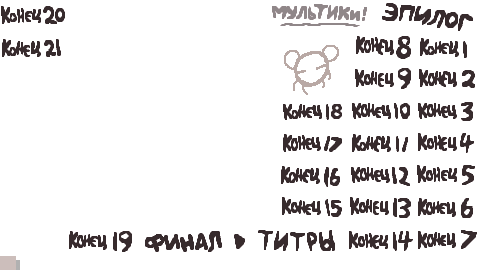 Конец 20 МУЛЬТИКИ! ЭПИЛОГ
Конец 21 Конец 8 Конец 1
Конец 9 Конец 2
Конец 18 Конец 10 Конец 3
Конец 17 Конец 11 Конец 4
Конец 16 Конец 12 Конец 5
Конец 15 Конец 13 Конец 6
Конец 19 ФИНАЛ ТИТРЫ Конец 14 Конец 7